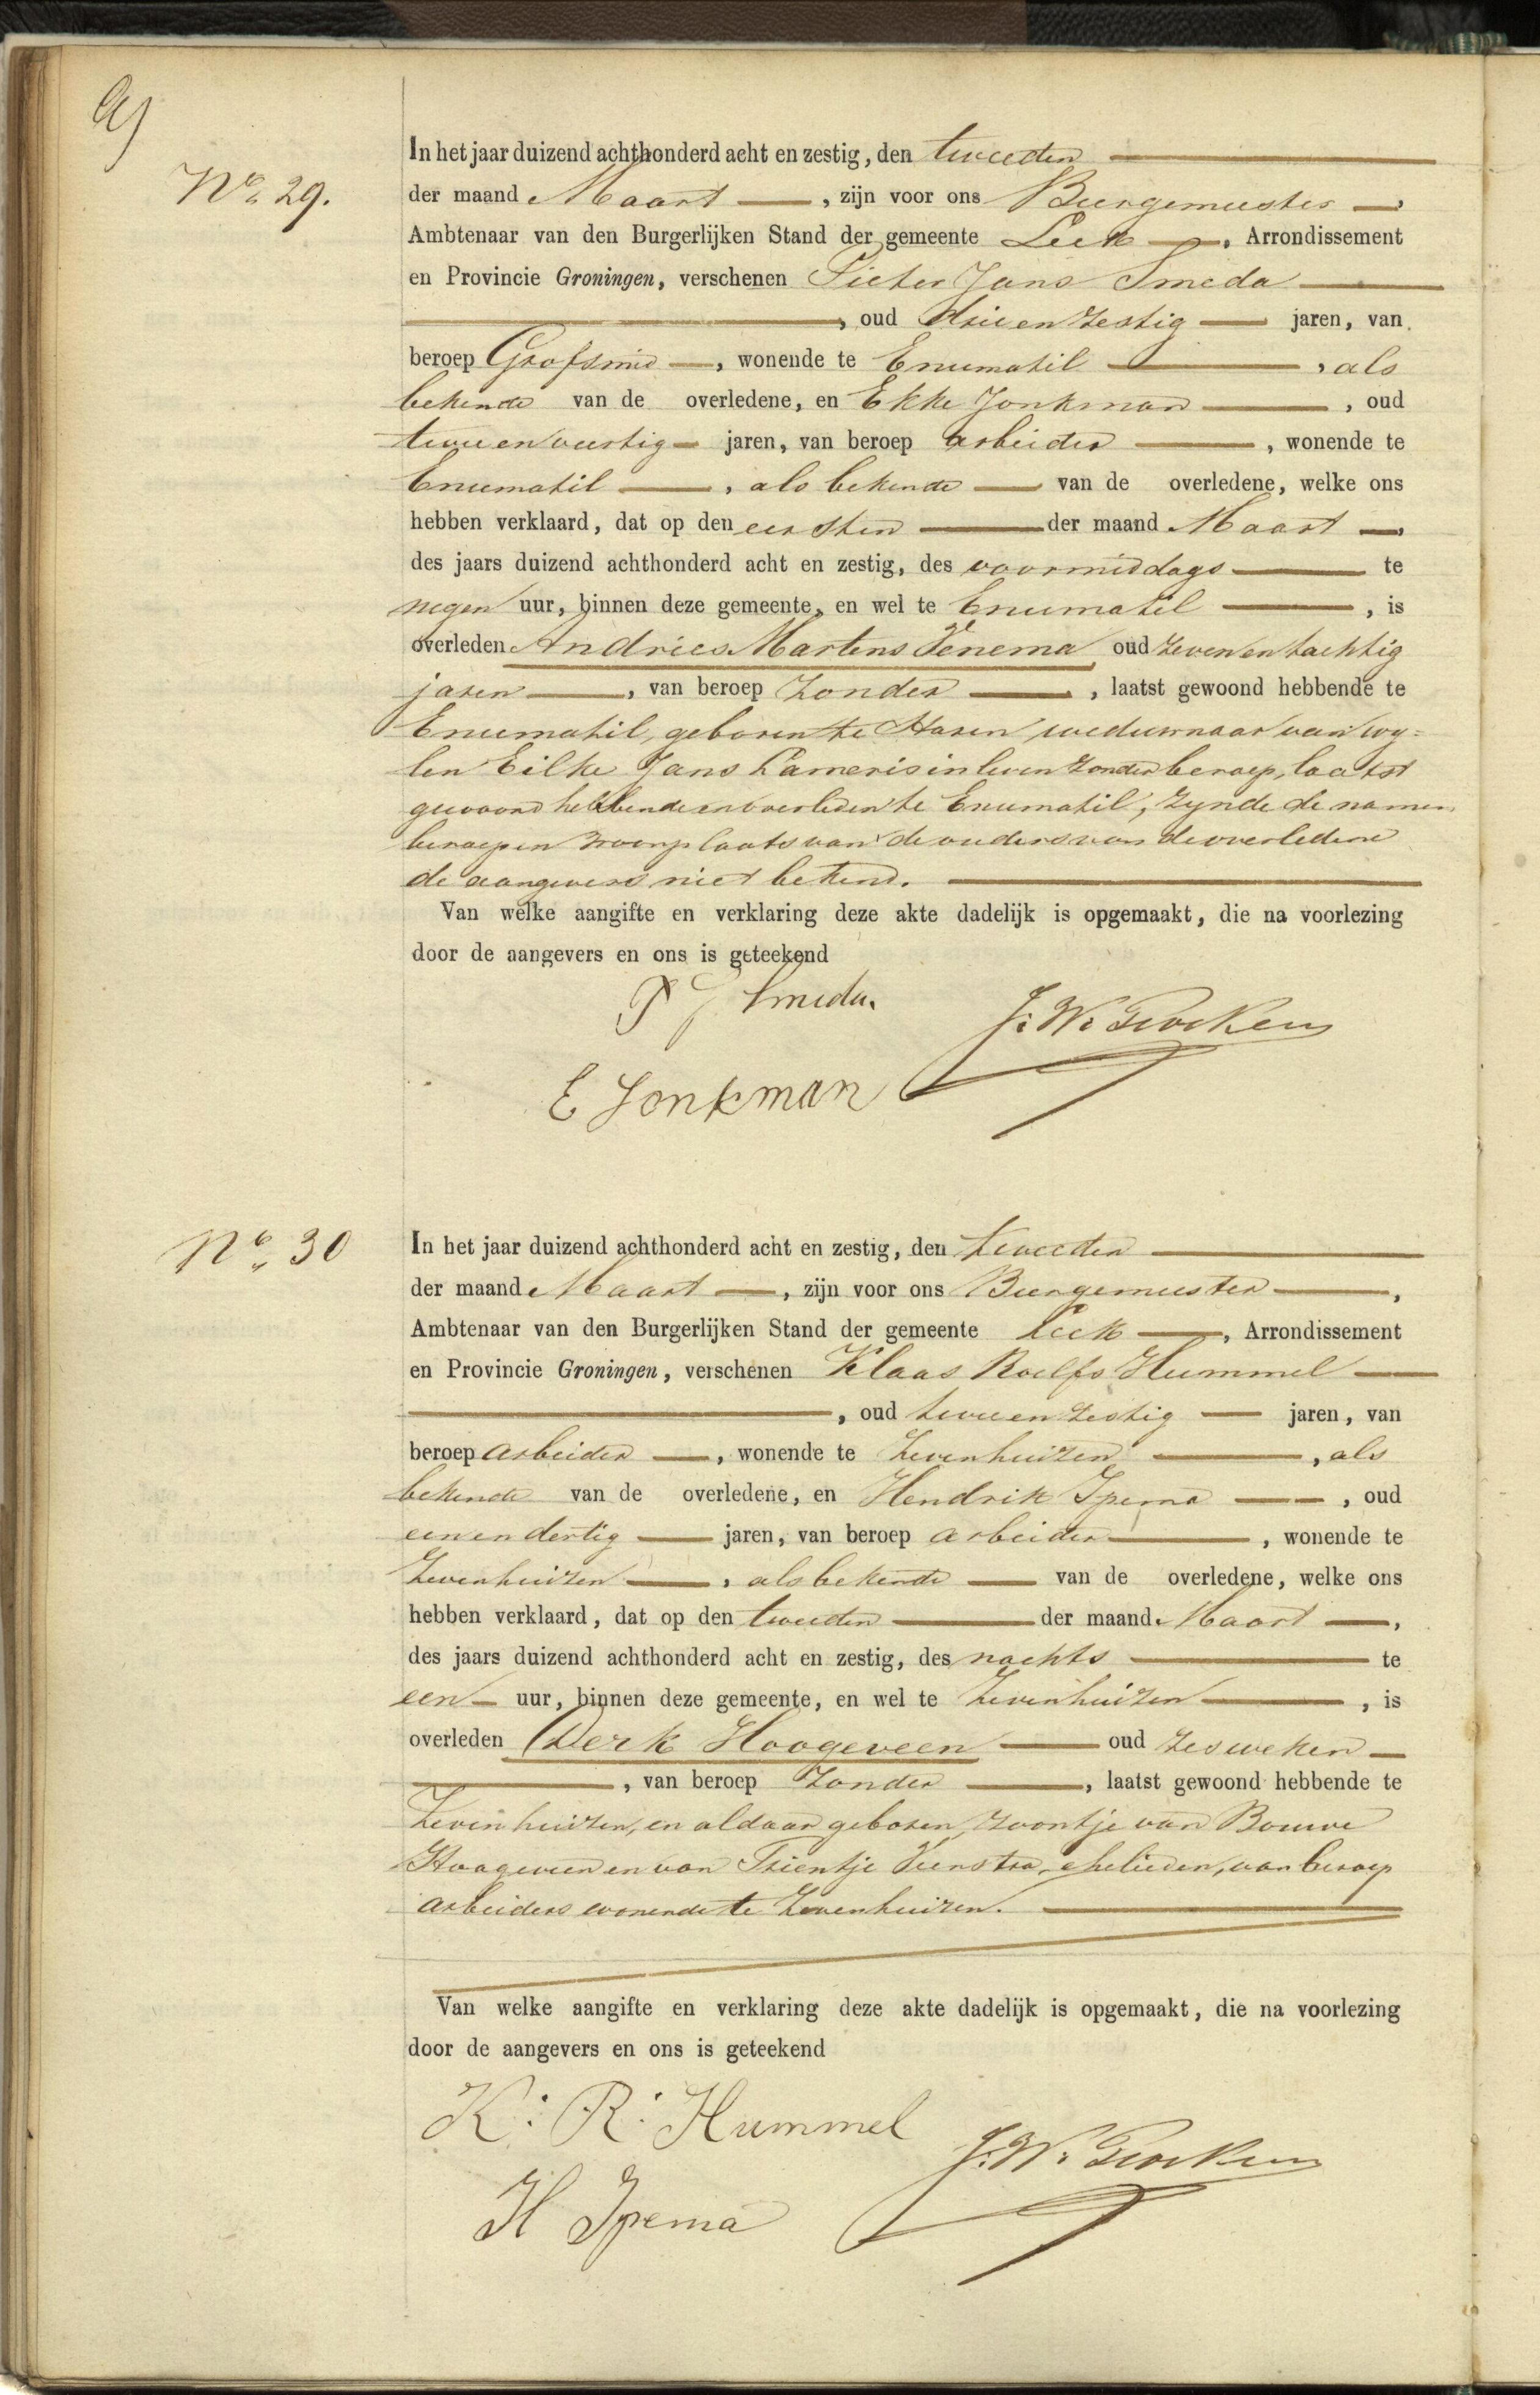 No 29.
In het jaar duizend achthonderd acht en zestig, den tweeden
der maand Maart, zijn voor ons Burgemeester,
Ambtenaar van den Burgerlijken Stand der gemeente Leek, Arrondissement
en Provincie Groningen, verschenen Pieter Jans Smeda
, oud drie en zestig jaren, van
beroep Grofsmid, wonende te Enumatil, als
bekende van de overledene, en Ekke Jonkman, oud
twee en veertig jaren, van beroep arbeider, wonende te
Enumatil, als bekende van de overledene, welke ons
hebben verklaard, dat op den eersten der maand Maart,
des jaars duizend achthonderd acht en zestig, des voormiddags te
negen uur, binnen deze gemeente, en wel te Enumatil, is
overleden Andries Martens Venema oud zeven en tachtig
jaren, van beroep zonder, laatst gewoond hebbende te
Enumatil, geboren te Haren weduwnaar van wy=
len Eilke Jans Lameris in leven zonder beroep, laatst
gewoond hebbende en overleden te Enumatil, zynde de namen
beroep en woonplaats van de ouders van de overledene
de aangevers niet bekend.
Van welke aangifte en verklaring deze akte dadelijk is opgemaakt, die na voorlezing
door de aangevers en ons is geteekend
P J Smeda.
J: W:
E Jonkman
No 30
In het jaar duizend achthonderd acht en zestig, den tweeden
der maand Maart, zijn voor ons Burgemeester,
Ambtenaar van den Burgerlijken Stand der gemeente Leek, Arrondissement
en Provincie Groningen, verschenen Klaas Roelfs Hummel
, oud twee en zestig jaren, van
beroep arbeider, wonende te Zevenhuizen, als
bekende van de overledene, en Hendrik Ipema, oud
een en dertig jaren, van beroep arbeider, wonende te
Zevenhuizen, als bekende van de overledene, welke ons
hebben verklaard, dat op den tweeden der maand Maart,
des jaars duizend achthonderd acht en zestig, des nachts te
een uur, binnen deze gemeente, en wel te Zevenhuizen, is
overleden Derk Hoogeveen oud zes weken
, van beroep zonder, laatst gewoond hebbende te
Zevenhuizen, en aldaar geboren, zoontje van Bouwe
Hoogeveen en van Trientje Veenstra, ehelieden, van beroep
arbeiders wonende te Zevenhuizen.
Van welke aangifte en verklaring deze akte dadelijk is opgemaakt, die na voorlezing
door de aangevers en ons is geteekend
K: R: Hummel
J: W:
H Ipema